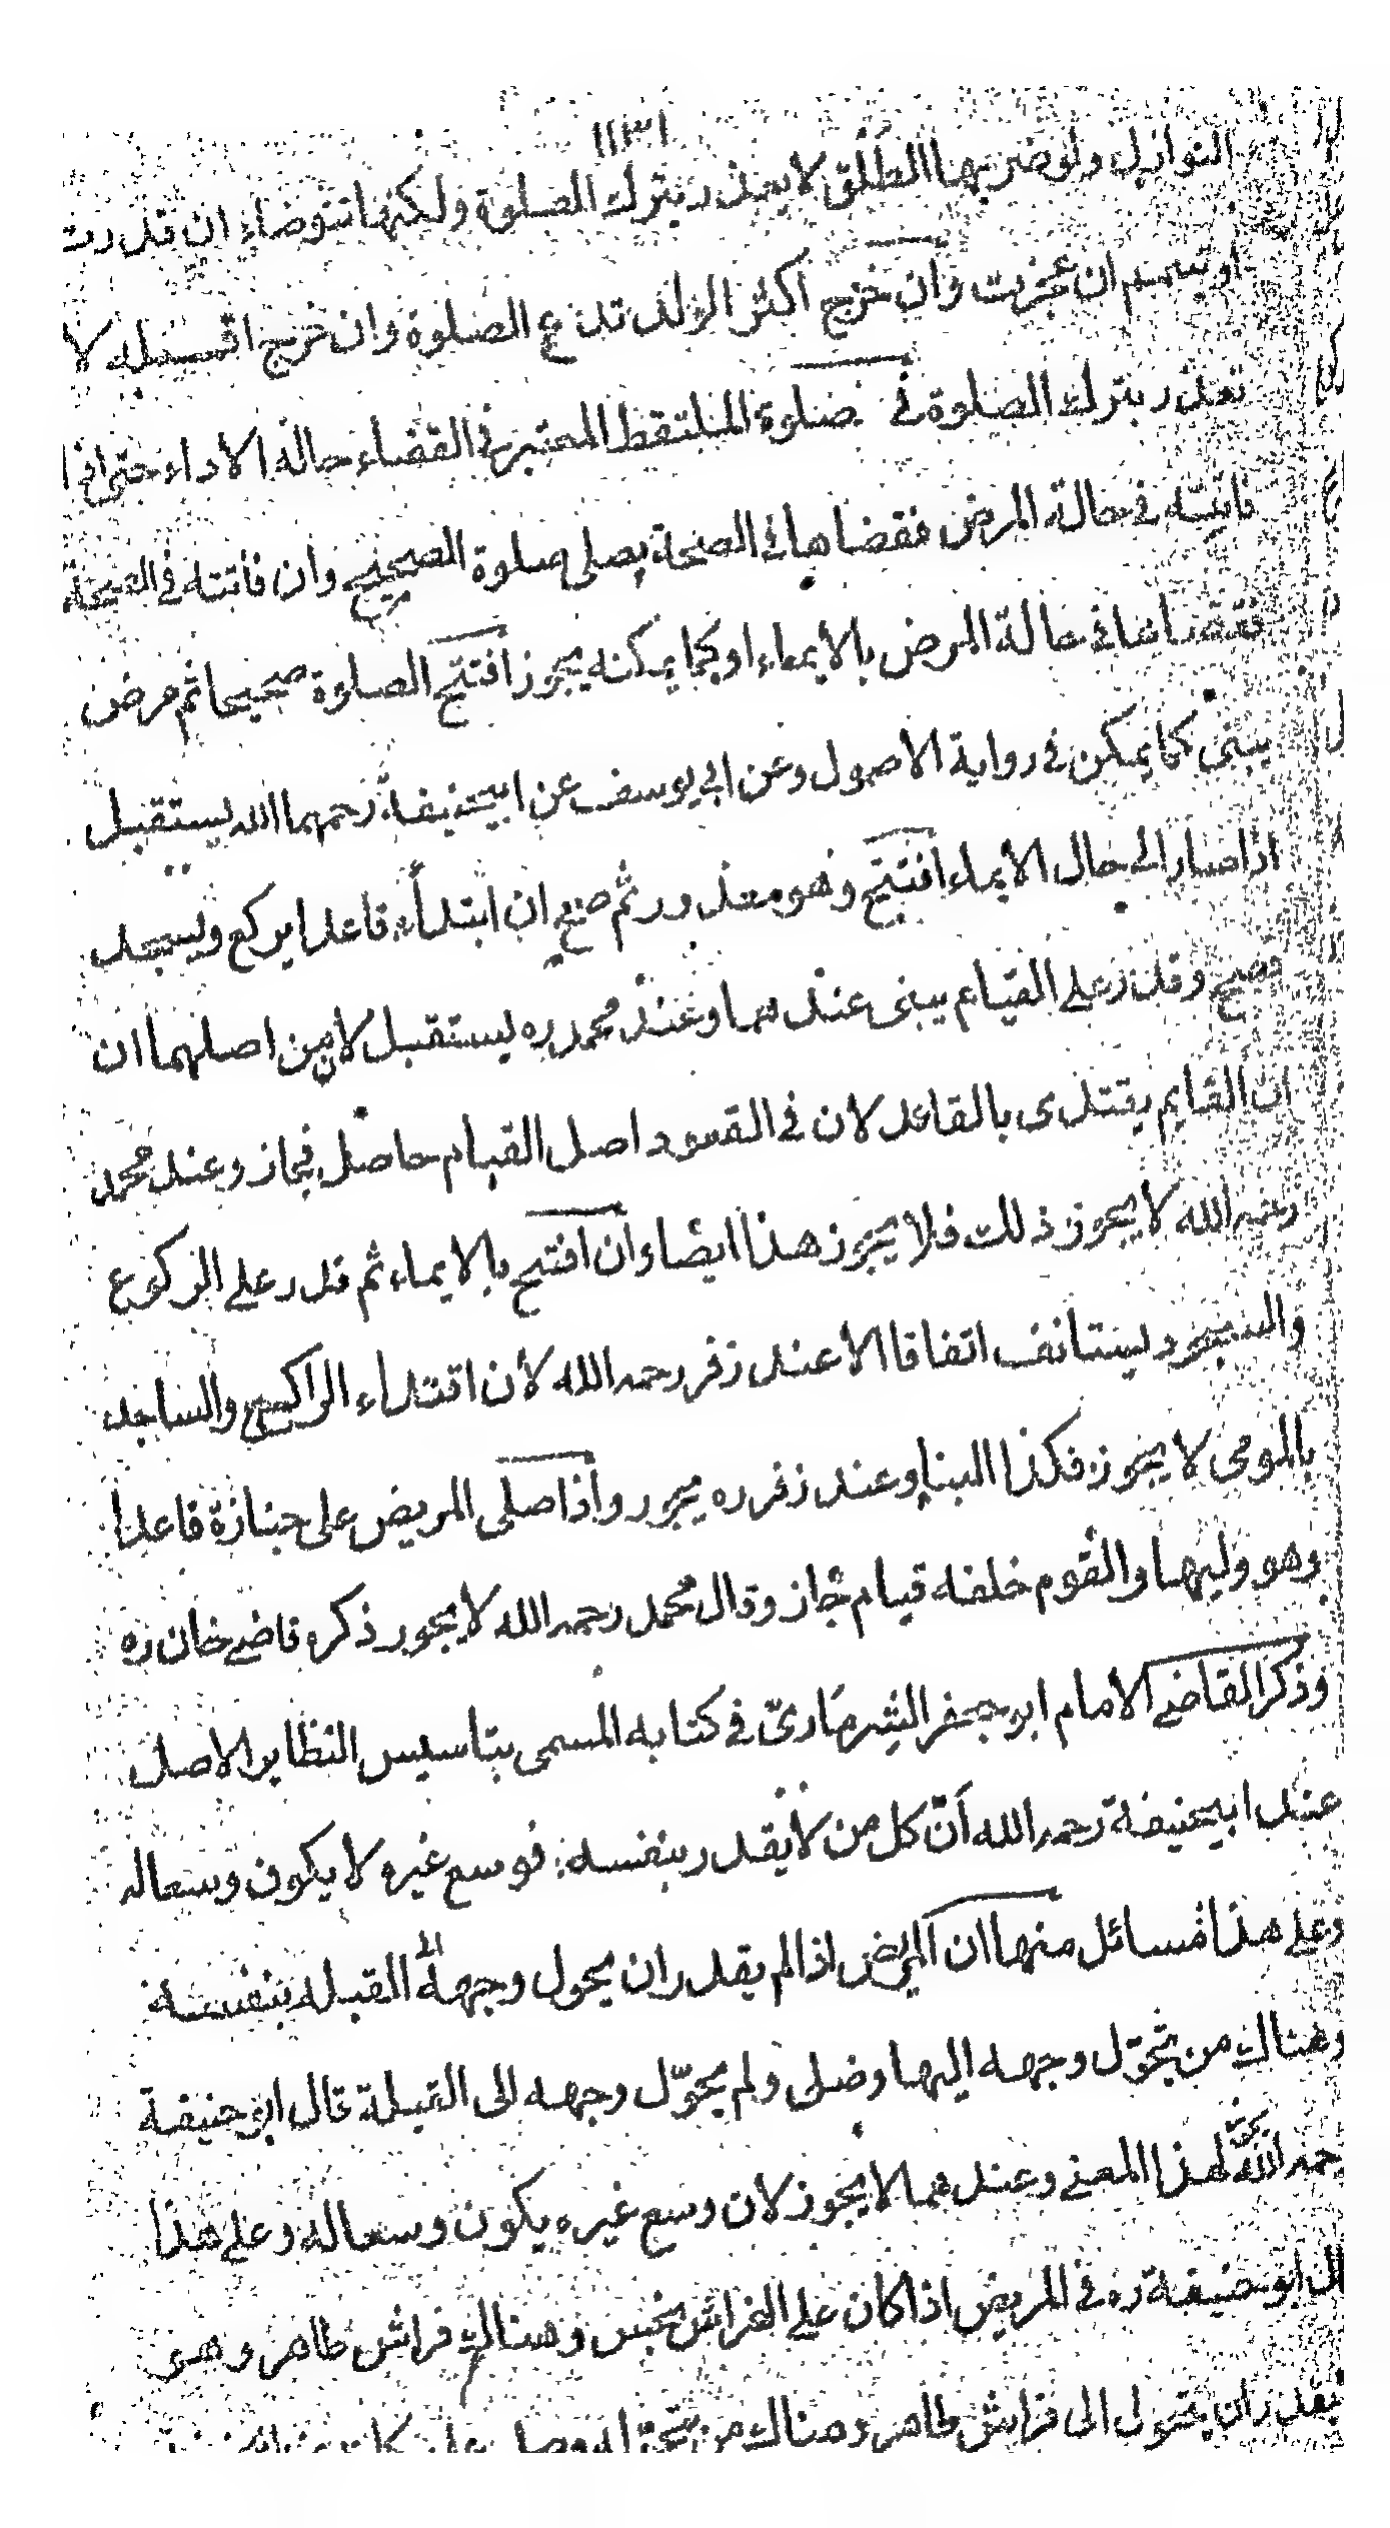 ١١٣١
النوازل ولو ضربها الطلق لا يعذر بترك الصلوة ولكنها تتوضاء ان قدرت
او تيمم ان عجزت وان خرج اكثر الولد تدع الصلوة وان خرج اقله لا
تعذر بترك الصلوة في صلوة الملتقط المعتبر في القضاء حالة الاداء حتى اذا
فاتته في حالة المرض فقضاها في الصحة يصلي صلوة الصحيح وان فاتته في الصحة
فقضاها في حالة المرض بالايماء او بما يمكنه يجوز افتتح الصلوة صحيحا ثم مرض
يبنى كما يمكن في رواية الاصول وعن ابي يوسف عن ابيحنيفة رحمهما الله يستقبل
اذا صار الى حال الايماء افتتح وهو معذور ثم صح ان ابتداء قاعدا يركع ويسجد
فصح وقدر على القيام يبنى عندهما وعند محمد ره يستقبل لان من اصلهما ان
ان القايم يقتدى بالقاعد لان في القعود اصل القيام حاصل فجاز وعند محمد
رحمه الله لا يجوز ذلك فلا يجوز هذا ايضاء وان افتتح بالايماء ثم قدر على الركوع
والسجود يستانف اتفاقا الا عند زفر رحمه الله لان اقتداء الراكع والساجد
بالمومى لا يجوز فكذا البناء وعند زفر ره يجوز واذا صلى المريض على جنازة قاعدا
وهو وليها والقوم خلفه قيام جاز وقال محمد رحمه الله لا يجوز ذكره قاضي خان ره
وذكر القاضي الامام ابو جعفر الشرمارى في كتابه المسمى بتاسيس النظاير الاصل
عند ابيحنيفة رحمه الله ان كل من لا يقدر بنفسه فوسع غيره لا يكون وسعا له
وعلى هذا مسائل منها ان المريض اذا لم يقدر ان يحول وجهه الى القبلة بنفسه
وهناك من يحوّل وجهه اليها وصلى ولم يحوّل وجهه الى القبلة قال ابو حنيفة
رحمه الله يجوز لهذا المعنى وعندهما لا يجوز لان وسع غيره يكون وسعا له وعلى هذا
قال ابو حنيفة ره في المريض اذا كان على الفراش نجس وهناك فراش طاهر وهو
يقدر ان يتحول الى فراش طاهر وهناك من يحوله وصلى على